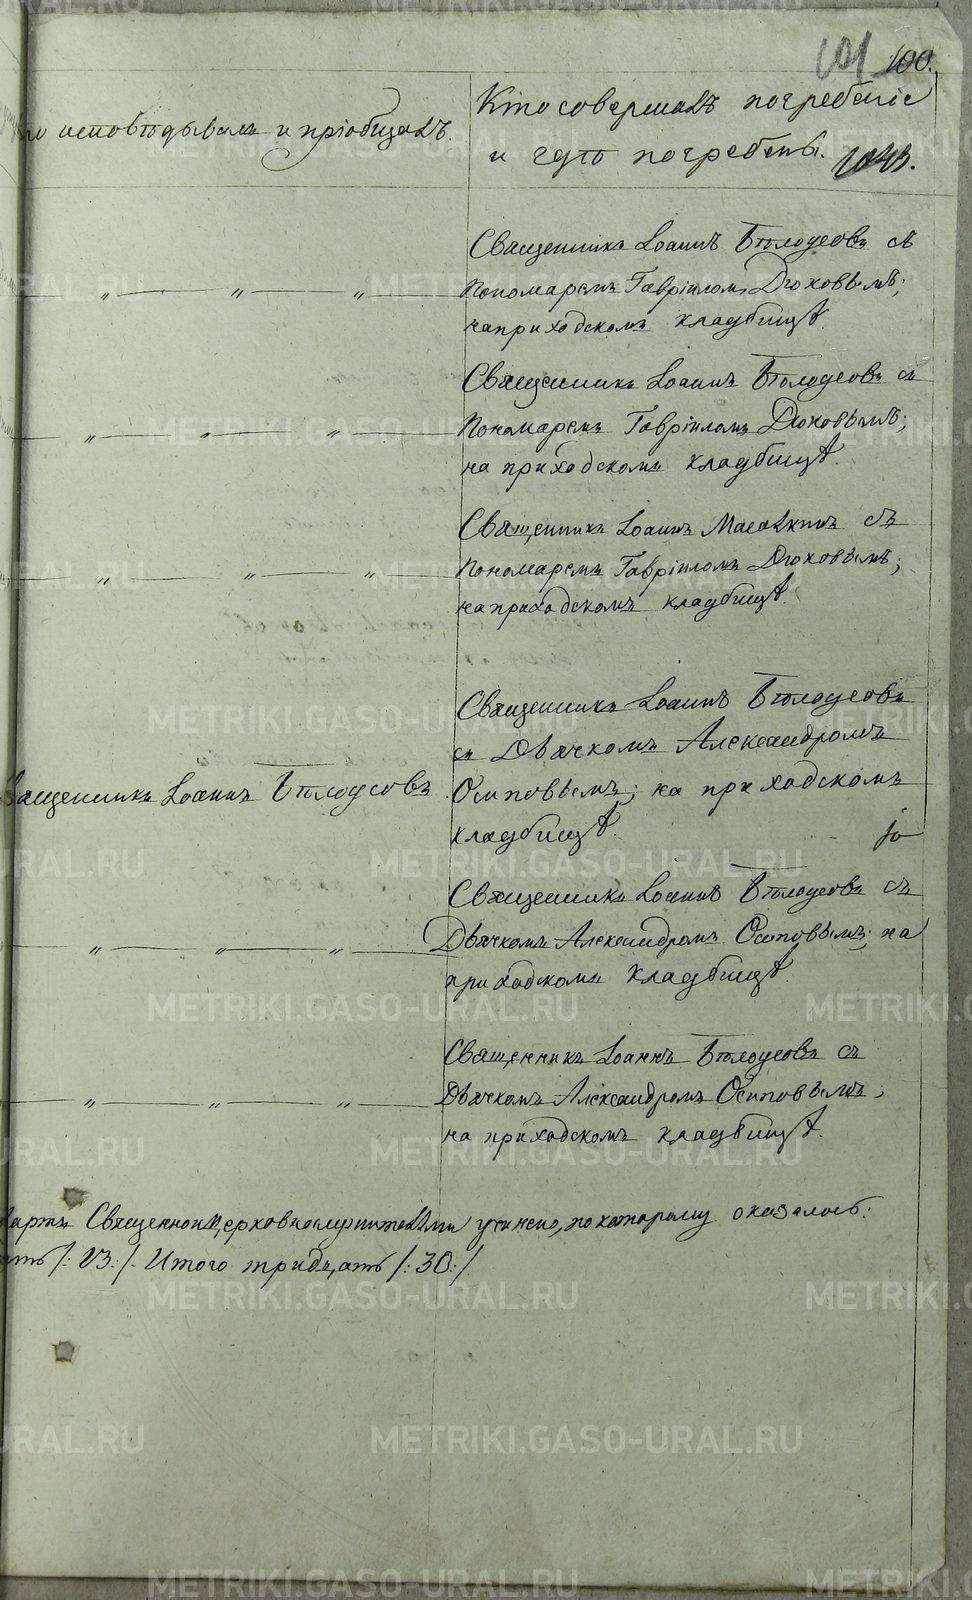 101 100.
Кто совершалъ погребеніе
исповѣдывалъ и пріобщалъ.
и гдѣ погребены.
Священникъ Іоаннъ Бѣлоусовъ съ
Пономаремъ Гавріиломъ Дюковымъ;
на приходскомъ кладбищѣ.
Священникъ Іоаннъ Бѣлоусовъ съ
Пономаремъ Гавріиломъ Дюковымъ;
на приходскомъ кладбищѣ.
Священникъ Іоаннъ съ
Пономаремъ Гавріиломъ Дюковымъ;
на приходскомъ кладбищѣ.
Священникъ Іоаннъ Бѣлоусовъ
съ Дьячкомъ Александромъ
Священникъ Іоаннъ Бѣлоусовъ
Осиповымъ; на приходскомъ
кладбищѣ.
Священникъ Іоаннъ Бѣлоусовъ съ
Дьячкомъ Александромъ Осиповымъ; на
приходскомъ кладбищѣ.
Священникъ Іоаннъ Бѣлоусовъ съ
Дьячкомъ Александромъ Осиповымъ;
на приходскомъ кладбищѣ.
Мартъ Священноцерковнослужителями учинено, по которому оказалось:
/: 13 :/. Итого тридцать /: 30 :/.
METRIKI.GASO-URAL.RU